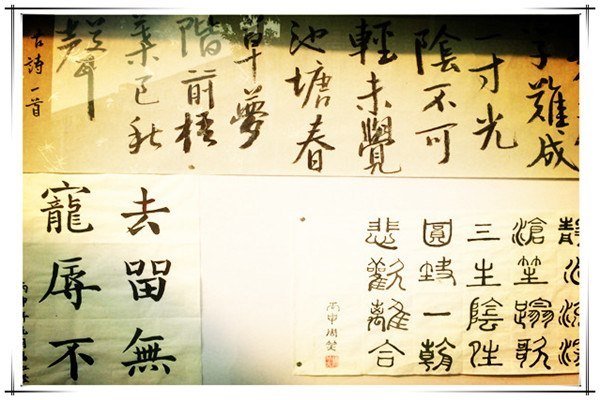 學難成
一寸光
陰不可
輕未覺
池塘春
草夢
階前梧
葉已秋
聲
古詩一首
去留無
寵辱不
靜水流深
滄笙蹋歌
三生陰性
圓缺一朝
悲歡離合
丙申